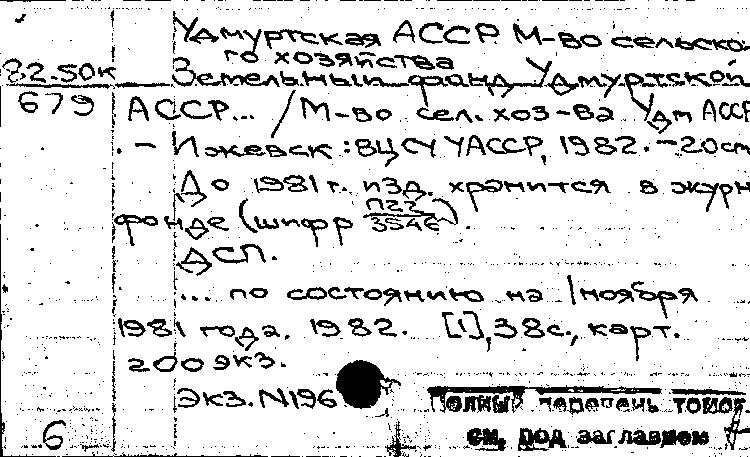 Удмуртская АССР. М-во сельско-
го хозяйства
82.50к Земельный фонд Удмуртской
679 АССР... / М-во сел. хоз-ва Удм АССР
. – Ижевск : ВЦ СУ УАССР, 1982. – 20 см
До 1981 г. изд. хранится в журн
фонде (шифр П22/3546).
ДСП.
... по состоянию на 1 ноября
1981 года. 1982. [1], 38 с., карт.
200 экз.
Экз. N196
Полный перечень томов
6 см. под заглавием